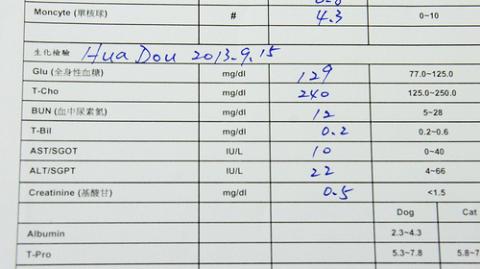 Moncyte (單核球) # 4.3 0~10
生化檢驗 Hua Dou 2013.9.15
Glu (全身性血糖) mg/dl 129 77.0~125.0
T-Cho mg/dl 240 125.0~250.0
BUN (血中尿素氮) mg/dl 12 5~28
T-Bil mg/dl 0.2 0.2~0.6
AST/SGOT IU/L 10 0~40
ALT/SGPT IU/L 22 4~66
Creatinine (基酸甘) mg/dl 0.5 <1.5
Dog Cat
Albumin 2.3~4.3
T-Pro 5.3~7.8